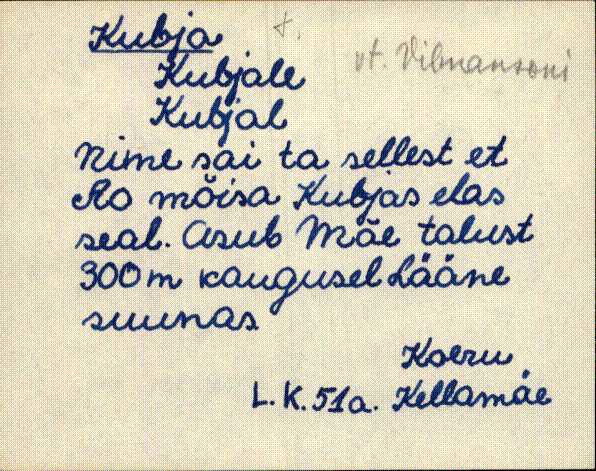 Kubja t.
vt. Vilmansoni
Kubjale
Kubjal
Nime sai ta sellest et
Ao mõisa Kubjas elas
seal. Asub Mäe talust
300 m kaugusel Lääne
suunas
Koeru
L. K. 51a. Kellamäe